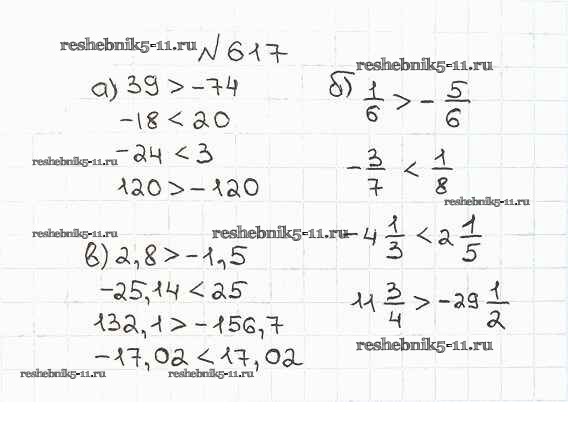 reshebnik5-11.ru
№ 617
reshebnik5-11.ru
а) 39 > -74
-18 < 20
-24 < 3
reshebnik5-11.ru
120 > -120
б) 1/6 > - 5/6
- 3/7 < 1/8
reshebnik5-11.ru
-4 1/3 < 2 1/5
11 3/4 > -29 1/2
reshebnik5-11.ru
reshebnik5-11.ru
reshebnik5-11.ru
в) 2,8 > -1,5
-25,14 < 25
132,1 > -156,7
-17,02 < 17,02
reshebnik5-11.ru
reshebnik5-11.ru